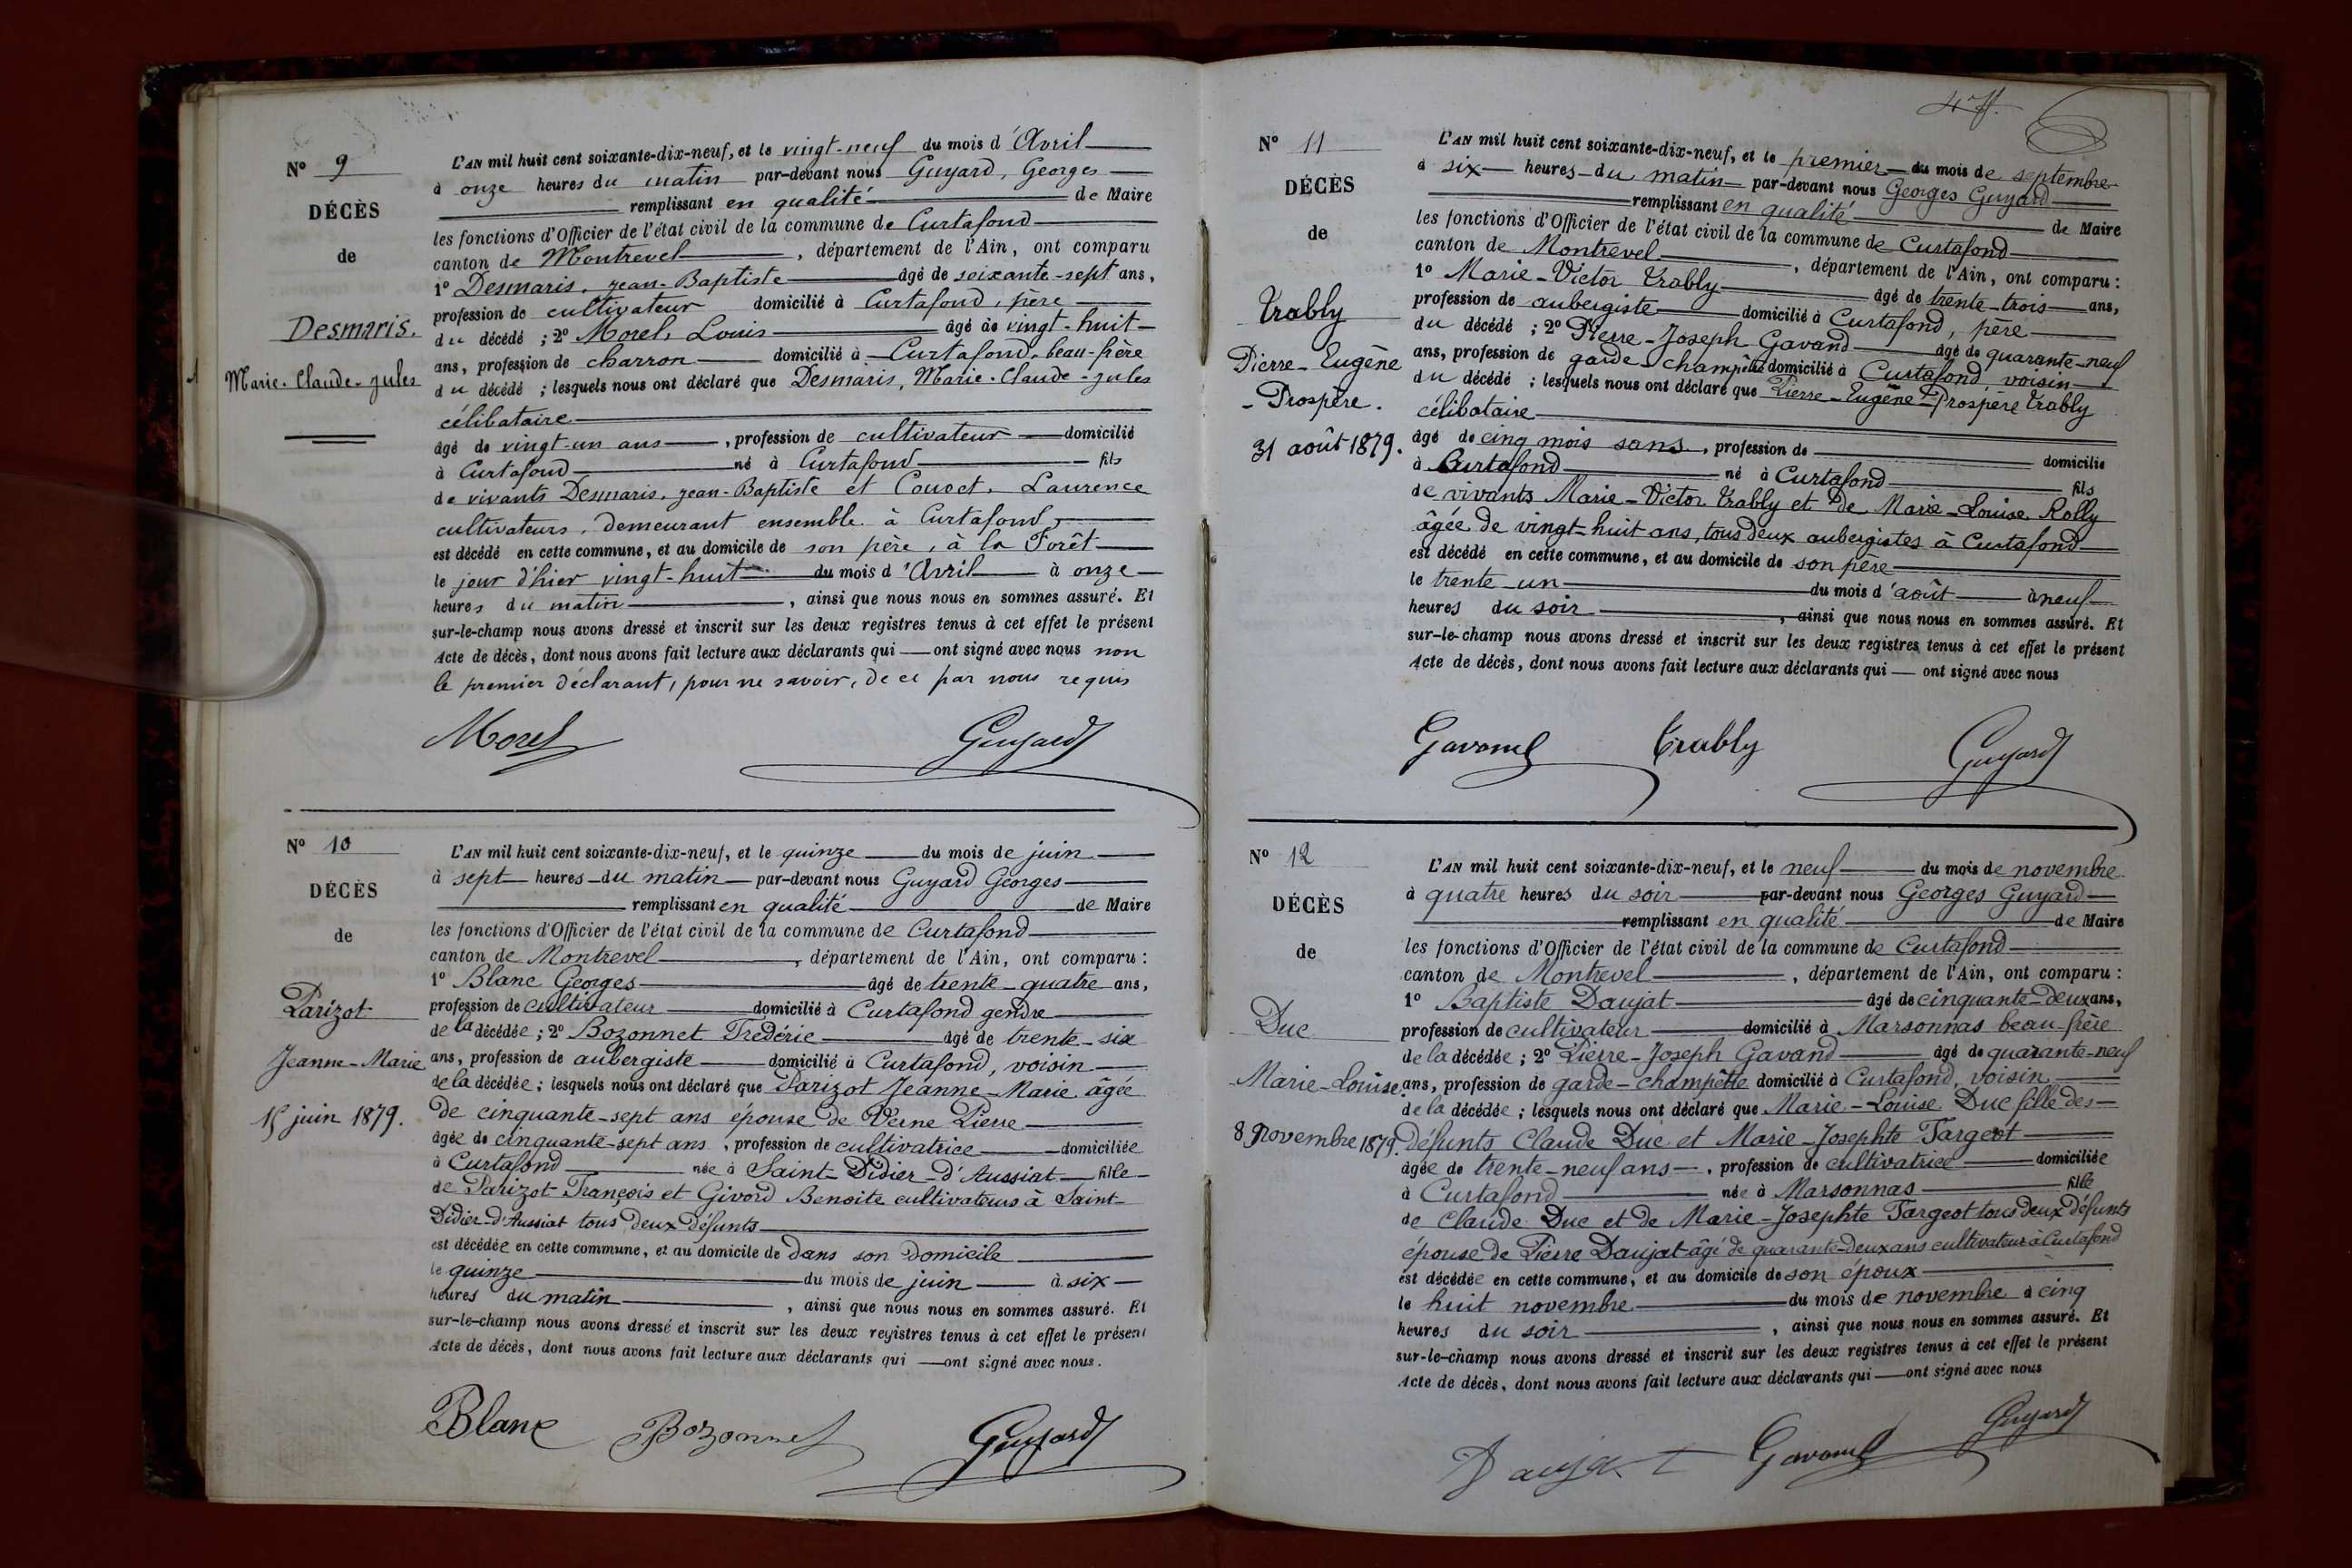 N° 9
DÉCÈS
de
Desmaris.
Marie-Claude-Jules
L'AN mil huit cent soixante-dix-neuf, et le vingt-neuf du mois d'Avril
à onze heures du matin par-devant nous Guyard, Georges
remplissant en qualité de Maire
les fonctions d'Officier de l'état civil de la commune de Curtafond
canton de Montrevel, département de l'Ain, ont comparu
1° Desmaris, Jean-Baptiste âgé de soixante-sept ans,
profession de cultivateur domicilié à Curtafond, père
du décédé ; 2° Morel, Louis âgé de vingt-huit
ans, profession de charron domicilié à Curtafond, beau-frère
du décédé ; lesquels nous ont déclaré que Desmaris, Marie-Claude-Jules
célibataire
âgé de vingt-un ans, profession de cultivateur domicilié
à Curtafond né à Curtafond fils
de vivants Desmaris, Jean-Baptiste et Laurence
cultivateurs, demeurant ensemble à Curtafond,
est décédé en cette commune, et au domicile de son père, à la Forêt
le jour d'hier vingt-huit du mois d'Avril à onze
heures du matin, ainsi que nous nous en sommes assuré. Et
sur-le-champ nous avons dressé et inscrit sur les deux registres tenus à cet effet le présent
Acte de décès, dont nous avons fait lecture aux déclarants qui ont signé avec nous non
le premier déclarant, pour ne savoir, de ce par nous requis
Morel Guyard
N° 10
DÉCÈS
de
Parizot
Jeanne-Marie
15 juin 1879.
L'AN mil huit cent soixante-dix-neuf, et le quinze du mois de juin
à sept heures du matin par-devant nous Guyard Georges
remplissant en qualité de Maire
les fonctions d'Officier de l'état civil de la commune de Curtafond
canton de Montrevel, département de l'Ain, ont comparu :
1° Blanc Georges âgé de trente-quatre ans,
profession de cultivateur domicilié à Curtafond gendre
de la décédée ; 2° Bozonnet Fredéric âgé de trente-six
ans, profession de aubergiste domicilié à Curtafond, voisin
de la décédée ; lesquels nous ont déclaré que Parizot Jeanne-Marie âgée
de cinquante-sept ans épouse de Verne Pierre
âgée de cinquante-sept ans, profession de cultivatrice domiciliée
à Curtafond née à Saint-Didier-d'Aussiat fille
de Parizot François et Givord Benoite cultivateurs à Saint-
Didier-d'Aussiat tous deux défunts
est décédée en cette commune, et au domicile de dans son domicile
le quinze du mois de juin à six
heures du matin, ainsi que nous nous en sommes assuré. Et
sur-le-champ nous avons dressé et inscrit sur les deux registres tenus à cet effet le présent
Acte de décès, dont nous avons fait lecture aux déclarants qui ont signé avec nous.
Blanc Bozonnet Guyard
N° 11
DÉCÈS
de
Trably
Pierre-Eugène
-Prospère.
31 août 1879.
L'AN mil huit cent soixante-dix-neuf, et le premier du mois de septembre
à six heures du matin par-devant nous Georges Guyard
remplissant en qualité de Maire
les fonctions d'Officier de l'état civil de la commune de Curtafond
canton de Montrevel, département de l'Ain, ont comparu :
1° Marie-Victor Trably âgé de trente-trois ans,
profession de aubergiste domicilié à Curtafond, père
du décédé ; 2° Pierre-Joseph Gavand âgé de quarante-neuf
ans, profession de garde-champêtre domicilié à Curtafond, voisin
du décédé ; lesquels nous ont déclaré que Pierre-Eugène-Prospère Trably
célibataire
âgé de cinq mois sans, profession de domicilié
à Curtafond né à Curtafond fils
de vivants Marie-Victor Trably et de Marie-Louise Rolly
âgée de vingt-huit ans, tous deux aubergistes à Curtafond
est décédé en cette commune, et au domicile de son père
le trente-un du mois d'août à neuf
heures du soir, ainsi que nous nous en sommes assuré. Et
sur-le-champ nous avons dressé et inscrit sur les deux registres tenus à cet effet le présent
Acte de décès, dont nous avons fait lecture aux déclarants qui ont signé avec nous
Gavand Trably Guyard
N° 12
DÉCÈS
de
Duc
Marie-Louise.
8 Novembre 1879.
L'AN mil huit cent soixante-dix-neuf, et le neuf du mois de novembre
à quatre heures du soir par-devant nous Georges Guyard
remplissant en qualité de Maire
les fonctions d'Officier de l'état civil de la commune de Curtafond
canton de Montrevel, département de l'Ain, ont comparu :
1° Baptiste Daujat âgé de cinquante-deux ans,
profession de cultivateur domicilié à Marsonnas beau-frère
de la décédée ; 2° Pierre-Joseph Gavand âgé de quarante-neuf
ans, profession de garde-champêtre domicilié à Curtafond, voisin
de la décédée ; lesquels nous ont déclaré que Marie-Louise Duc fille des
défunts Claude Duc et Marie-Josephte Targeot
âgée de trente-neuf ans, profession de cultivatrice domiciliée
à Curtafond née à Marsonnas fille
de Claude Duc et de Marie-Josephte Targeot tous deux défunts
épouse de Pierre Daujat âgé de quarante-deux ans cultivateur à Curtafond
est décédée en cette commune, et au domicile de son époux
le huit novembre du mois de novembre à cinq
heures du soir, ainsi que nous nous en sommes assuré. Et
sur-le-champ nous avons dressé et inscrit sur les deux registres tenus à cet effet le présent
Acte de décès, dont nous avons fait lecture aux déclarants qui ont signé avec nous
Daujat Gavand Guyard